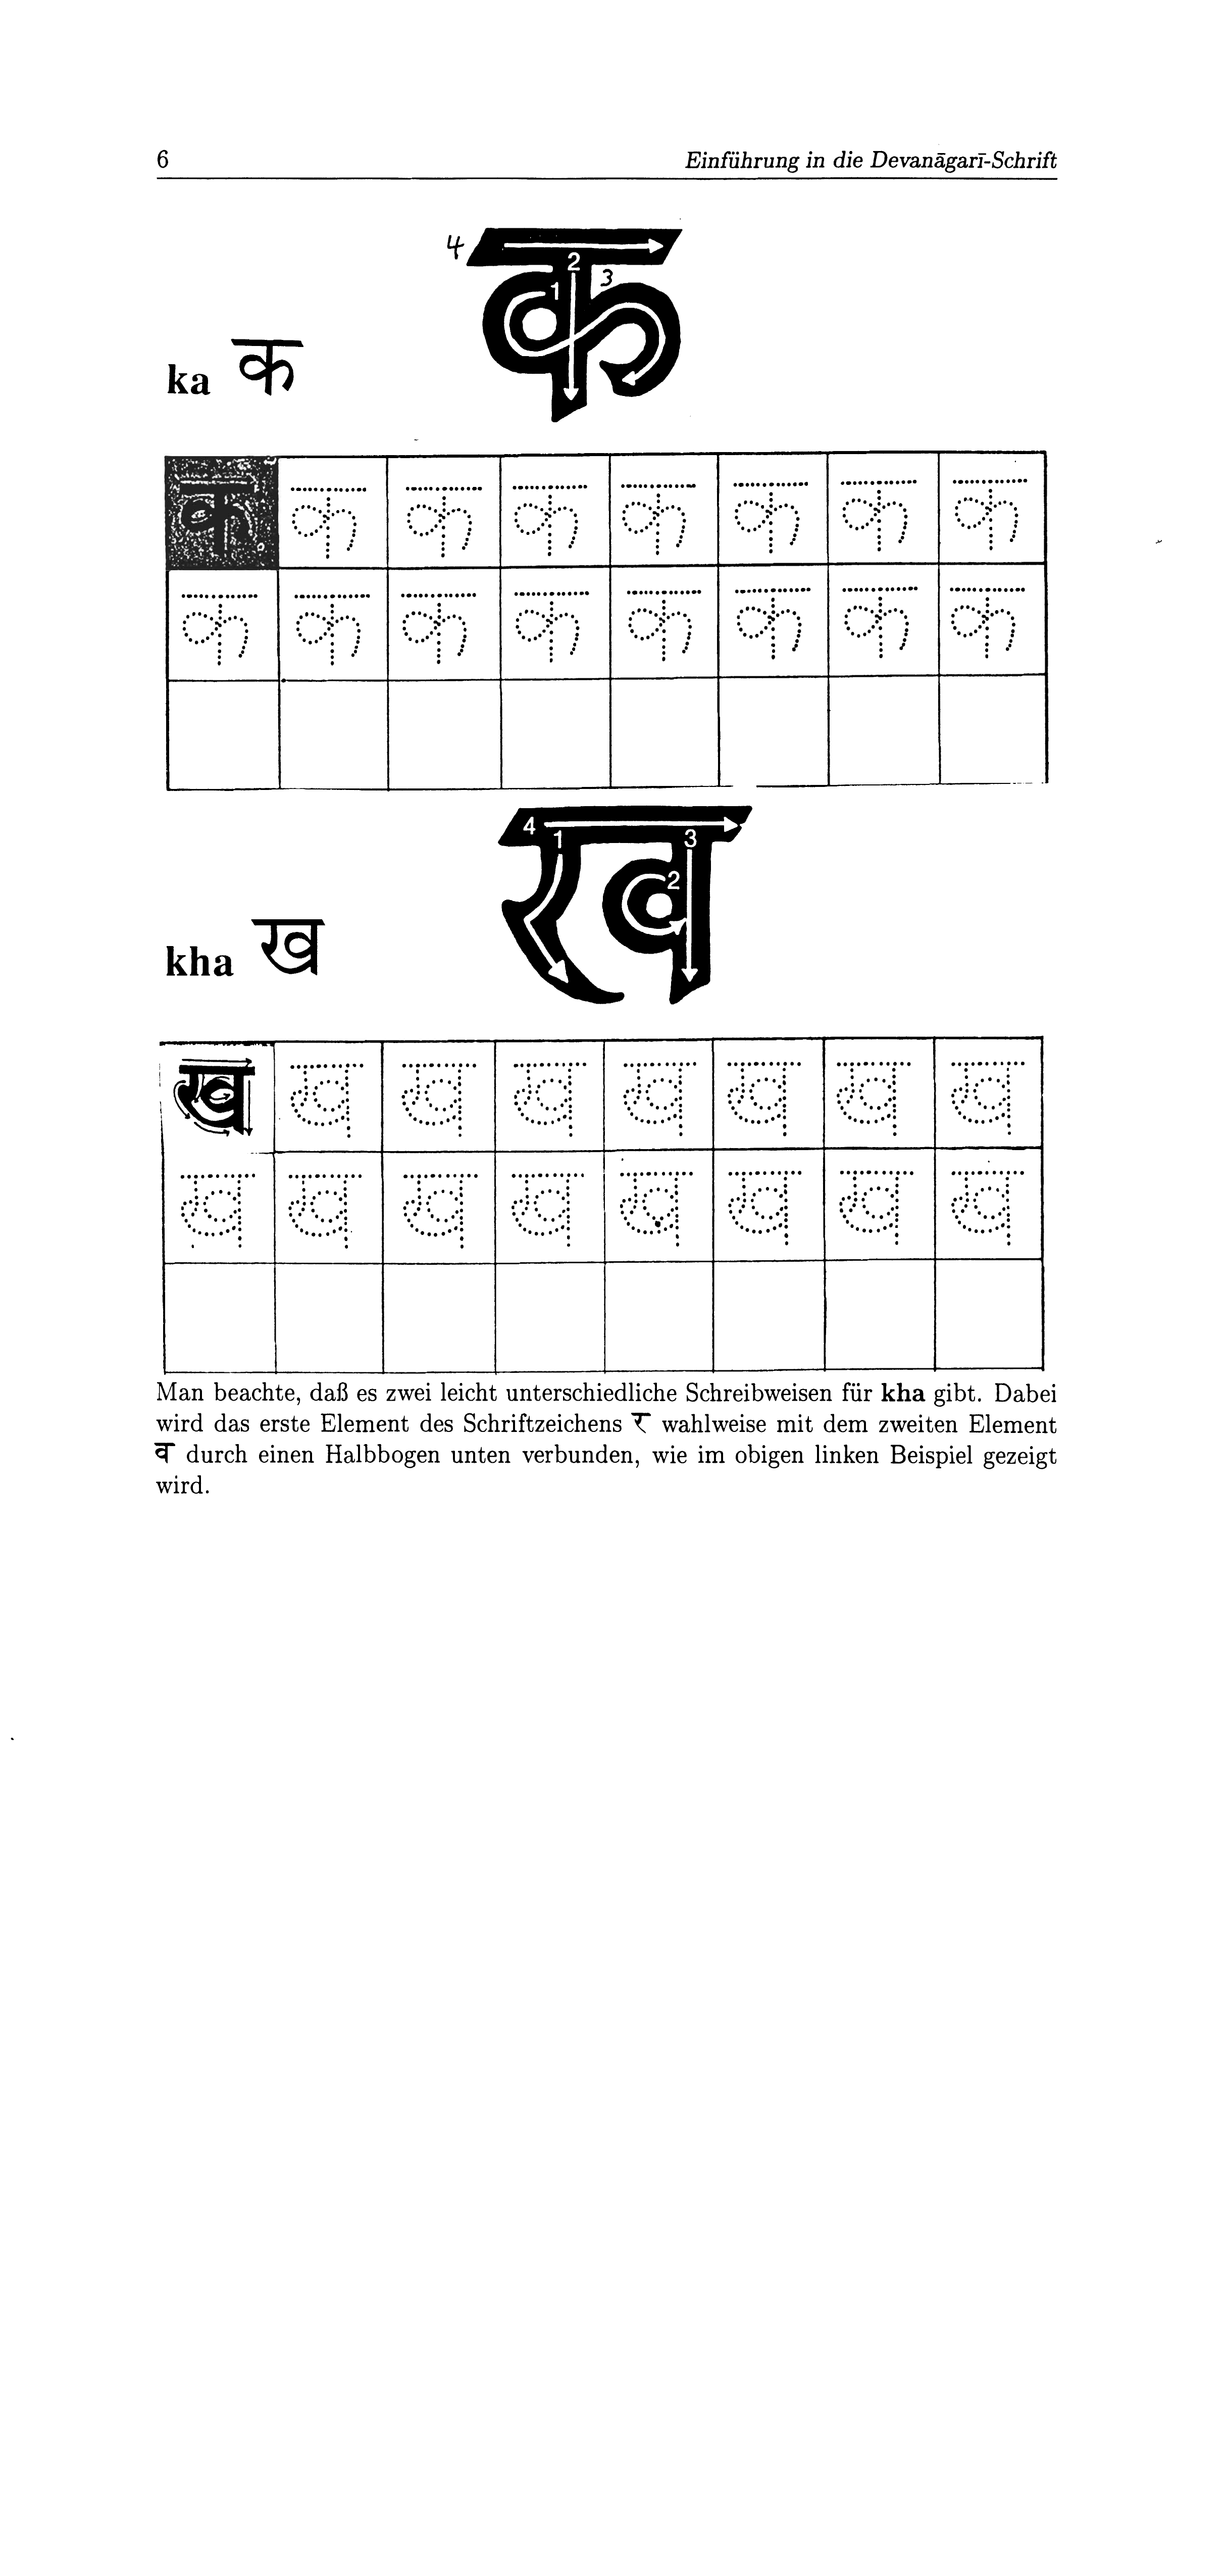 6 Einführung in die Devanāgarī-Schrift
4 2 3 1
ka क
क क क क क क क क
क क क क क क क क
4 1 3 2
kha ख
ख ख ख ख ख ख ख ख
ख ख ख ख ख ख ख ख
Man beachte, daß es zwei leicht unterschiedliche Schreibweisen für kha gibt. Dabei
wird das erste Element des Schriftzeichens र wahlweise mit dem zweiten Element
व durch einen Halbbogen unten verbunden, wie im obigen linken Beispiel gezeigt
wird.